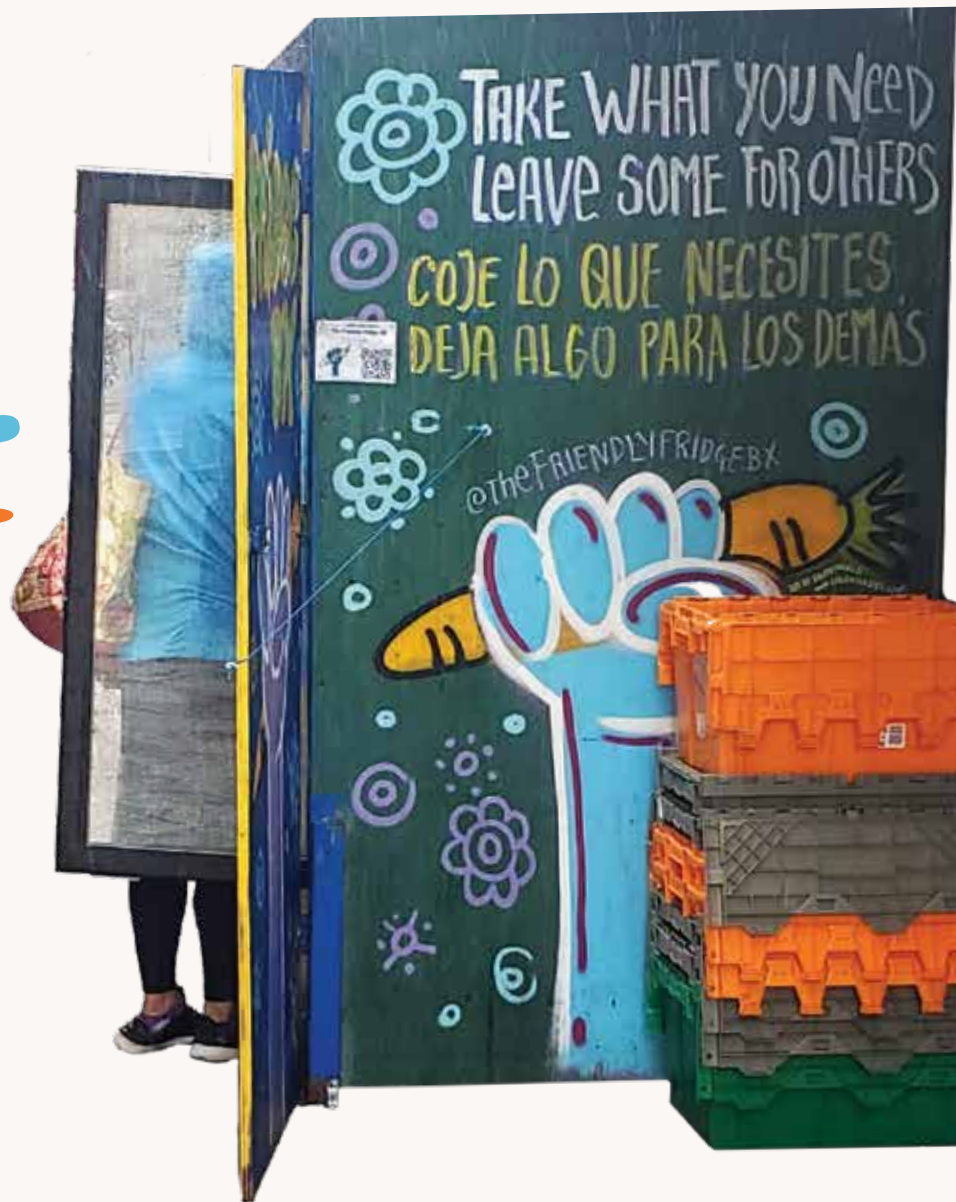 TAKE WHAT YOU NeeD
LeAVe SOME FOR OTHERS
COJE LO QUE NECESITES.
DEJA ALGO PARA LOS DEMÁS
@THeFRIENDLYFRIDGEBX